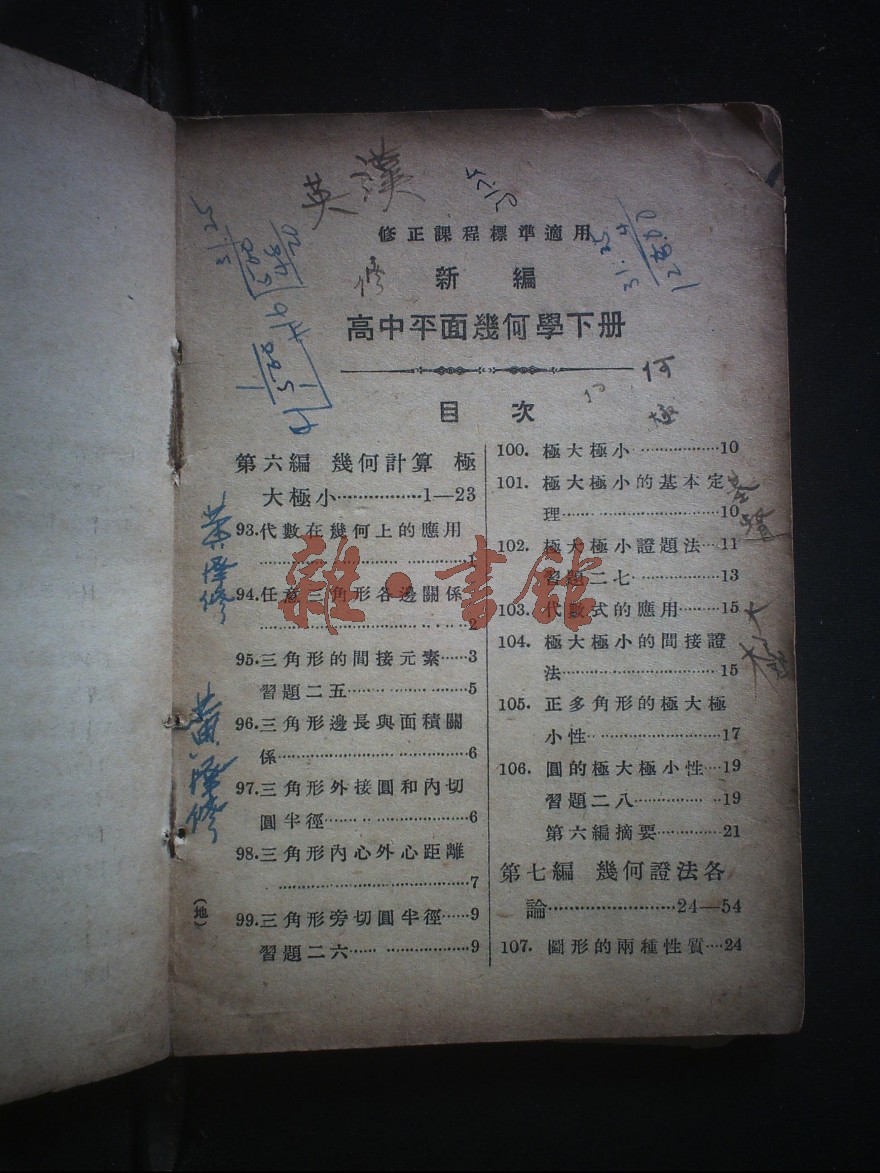 英漢
修正課程標準適用
修
新編
高中平面幾何學下册
何
極
目次
第六編 幾何計算 極
大極小………………1—23
93.代數在幾何上的應用
…………………………1
94.任意三角形各邊關係
…………………………2
95.三角形的間接元素……3
習題二五………………5
96.三角形邊長與面積關
係………………………6
97.三角形外接圓和內切
圓半徑…………………6
98.三角形內心外心距離
…………………………7
99.三角形旁切圓半徑……9
習題二六………………9
100. 極大極小………………10
101. 極大極小的基本定
理………………………10
102. 極大極小證題法…11
習題二七………………13
103. 代數式的應用……15
104. 極大極小的間接證
法………………………15
105. 正多角形的極大極
小性……………………17
106. 圓的極大極小性…19
習題二八………………19
第六編摘要……………21
第七編 幾何證法各
論……………………24—54
107. 圖形的兩種性質…24
黃澤修
黃澤修
(地)
雜·書館